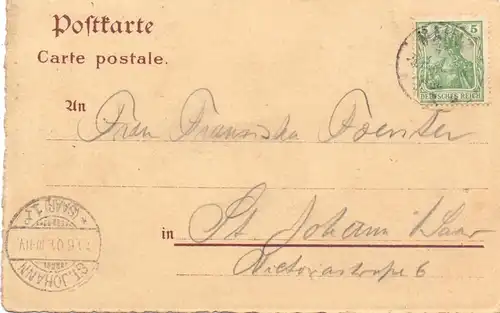 Postkarte
Carte postale.
5
DEUTSCHES REICH
An Frau Franziska Foerster
in St. Johann /Saar
Victoriastraße 6
ST. JOHANN
(SAAR) 1